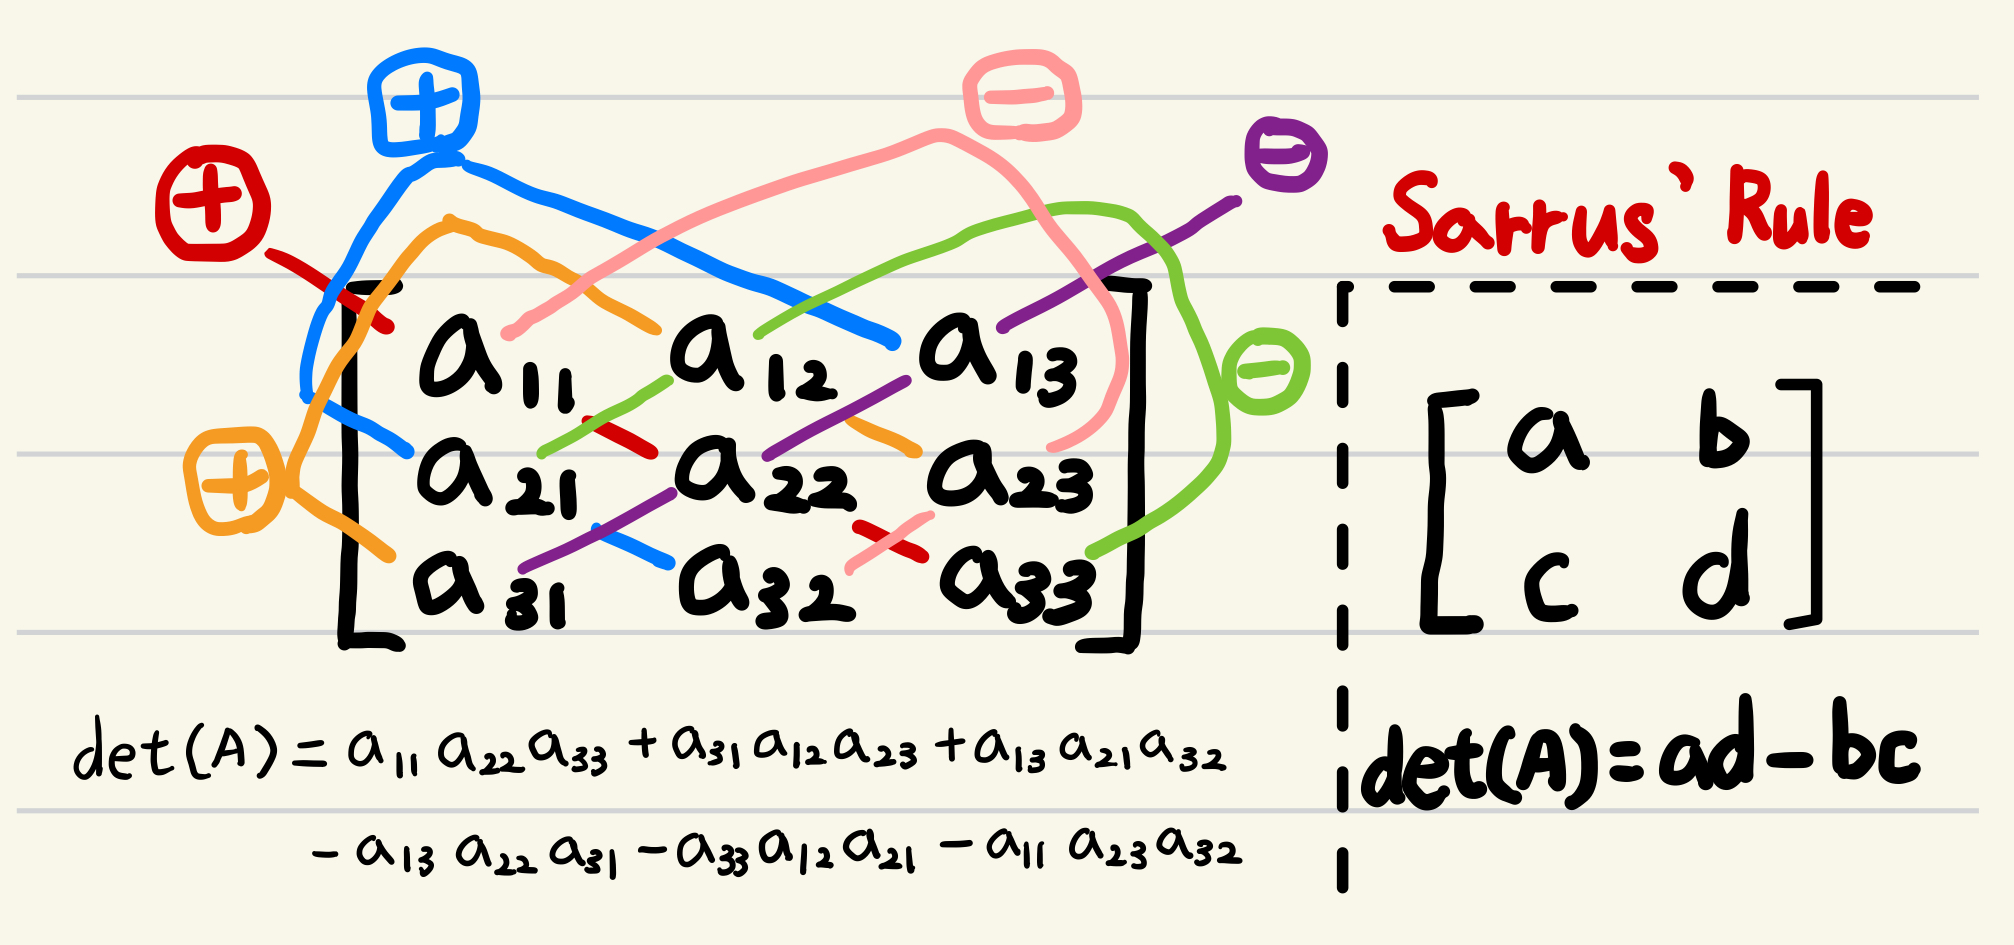 + −
+ −
Sarrus' Rule
a₁₁ a₁₂ a₁₃
−
a₂₁ a₂₂ a₂₃
+
a₃₁ a₃₂ a₃₃
det(A) = a₁₁ a₂₂ a₃₃ + a₃₁ a₁₂ a₂₃ + a₁₃ a₂₁ a₃₂
− a₁₃ a₂₂ a₃₁ − a₃₃ a₁₂ a₂₁ − a₁₁ a₂₃ a₃₂
a b
c d
det(A) = ad − bc